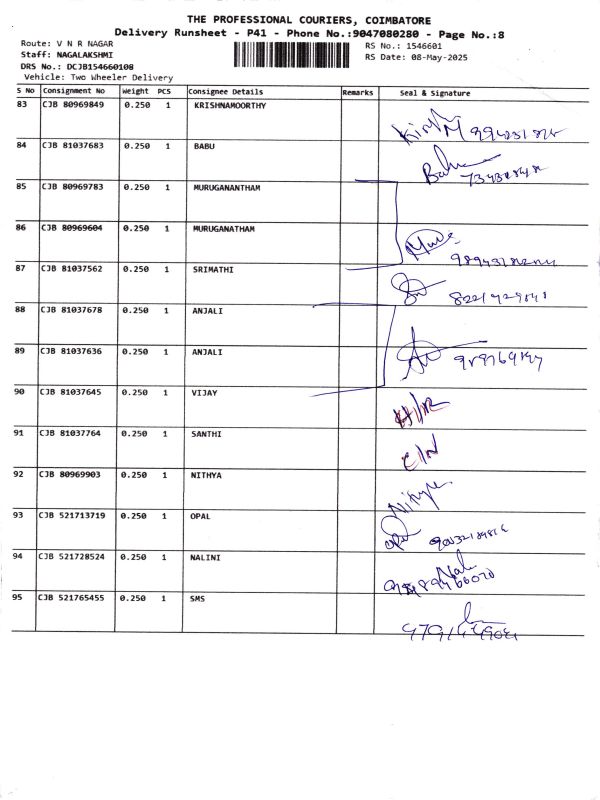 THE PROFESSIONAL COURIERS, COIMBATORE
Delivery Runsheet - P41 - Phone No.:9047080280 - Page No.:8
Route: V N R NAGAR
Staff: NAGALAKSHMI
DRS No.: DCJB154660108
Vehicle: Two Wheeler Delivery
RS No.: 1546601
RS Date: 08-May-2025
S No Consignment No Weight PCS Consignee Details Remarks Seal & Signature
83 CJB 80969849 0.250 1 KRISHNAMOORTHY
84 CJB 81037683 0.250 1 BABU
85 CJB 80969783 0.250 1 MURUGANANTHAM
86 CJB 80969604 0.250 1 MURUGANATHAM
87 CJB 81037562 0.250 1 SRIMATHI
88 CJB 81037678 0.250 1 ANJALI
89 CJB 81037636 0.250 1 ANJALI
90 CJB 81037645 0.250 1 VIJAY
91 CJB 81037764 0.250 1 SANTHI
92 CJB 80969903 0.250 1 NITHYA Nithya
93 CJB 521713719 0.250 1 OPAL
94 CJB 521728524 0.250 1 NALINI
95 CJB 521765455 0.250 1 SMS